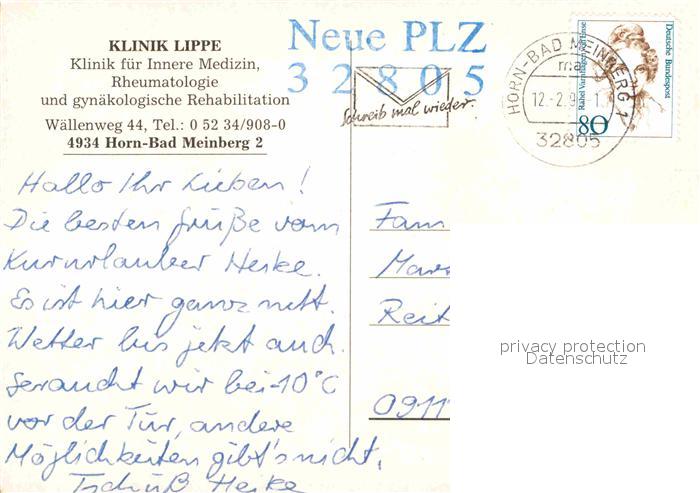 KLINIK LIPPE
Klinik für Innere Medizin,
Rheumatologie
und gynäkologische Rehabilitation
Wällenweg 44, Tel.: 0 52 34/908-0
4934 Horn-Bad Meinberg 2
Neue PLZ
3 2 8 0 5
Schreib mal wieder.
HORN-BAD MEINBERG 1
ma
12.-2.9
32805
Deutsche Bundespost
80
Hallo Ihr Lieben!
Die besten Grüße vom
Kururlauber Heike.
Es ist hier ganz nett.
Wetter bis jetzt auch.
Geraucht wir bei -10°C
vor der Tür, andere
Möglichkeiten gibt's nicht.
Tschüß Heike
Fam
Mar
Reit
0911
privacy protection
Datenschutz